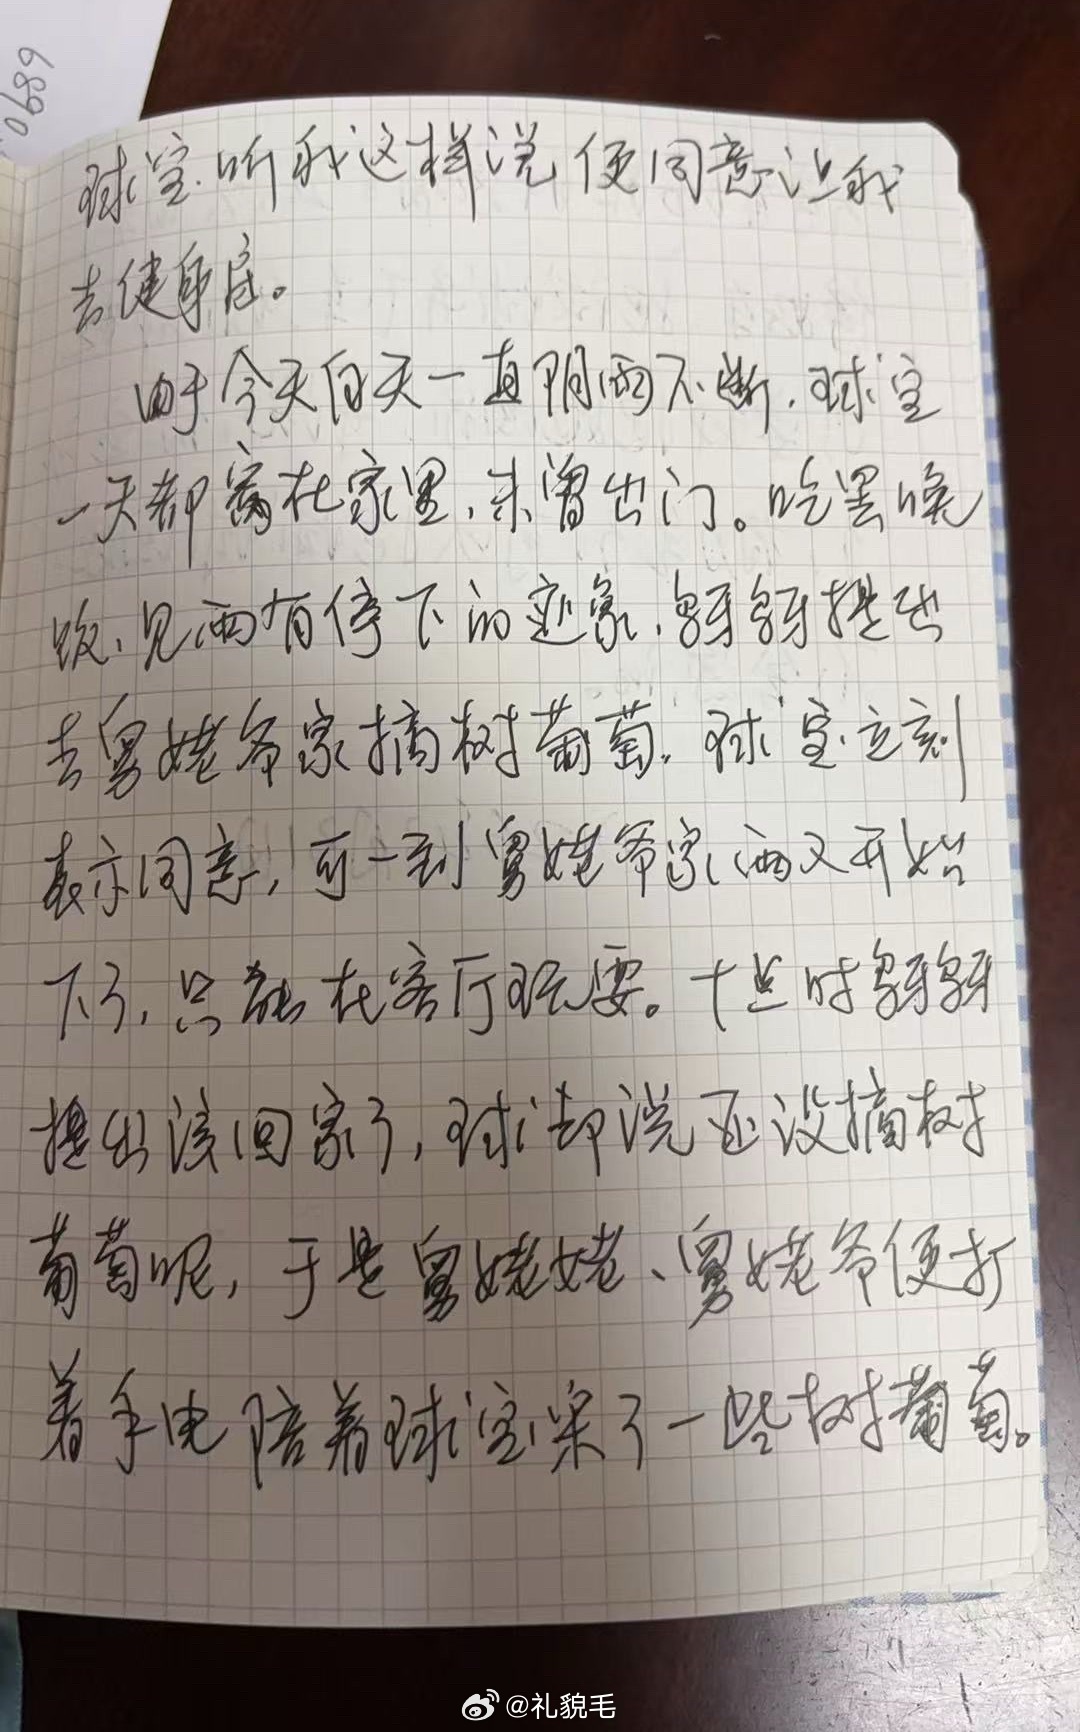 0689
球宝听我这样说便同意让我
去健身房。
由于今天白天一直阴雨不断,球宝
一天都窝在家里,未曾出门。吃罢晚
饭,见雨有停下的迹象,舅舅提出
去舅姥爷家摘树葡萄,球宝立刻
表示同意,可一到舅姥爷家雨又开始
下了,只能在客厅玩耍。十点时舅舅
提出该回家了,球却说还没摘树
葡萄呢,于是舅姥姥、舅姥爷便打
着手电陪着球宝采了一些树葡萄。
@礼貌毛